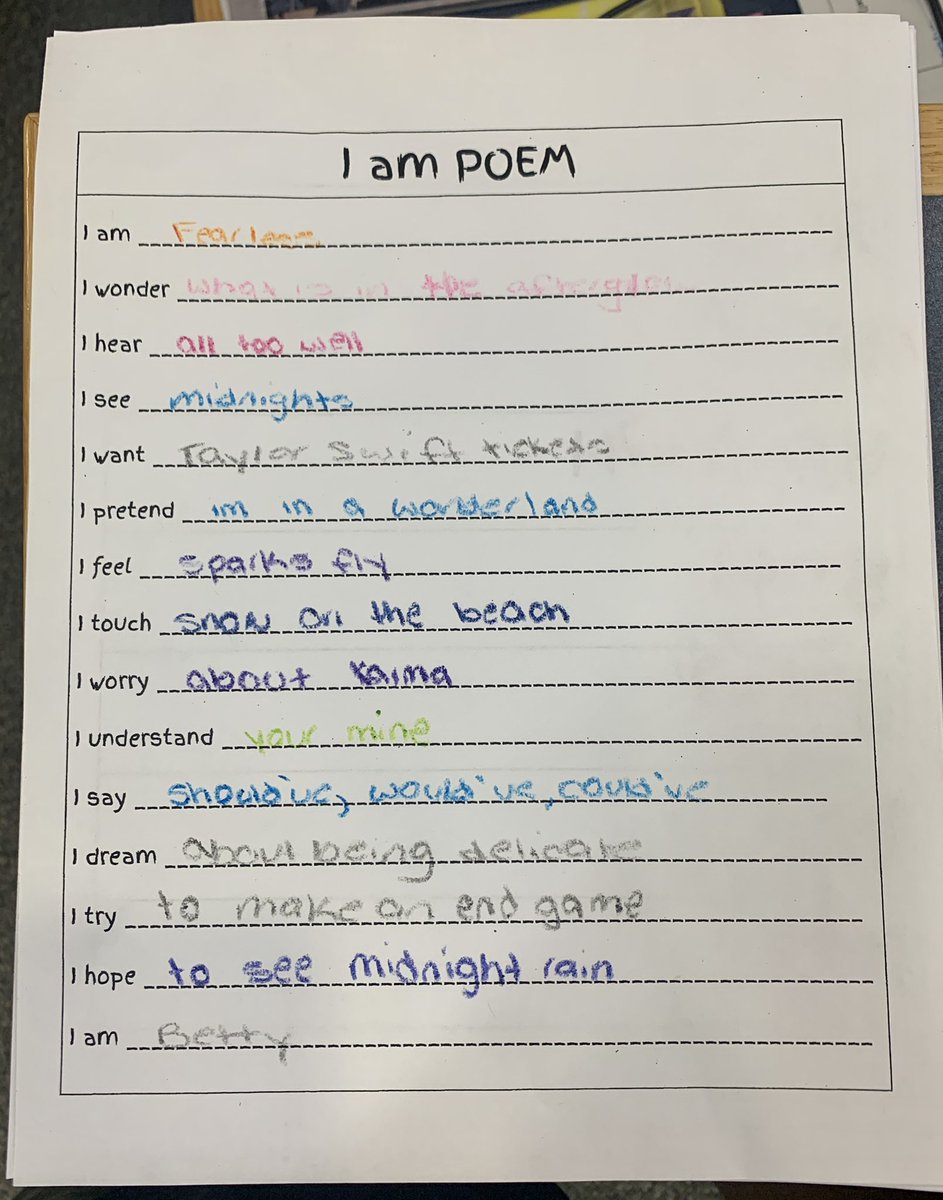 I am POEM
I am Fearless
I wonder what is in the afterglow
I hear all too well
I see midnights
I want Taylor Swift tickets
I pretend im in a wonderland
I feel sparks fly
I touch snow on the beach
I worry about karma
I understand your mine
I say should've, would've, could've
I dream about being delicate
I try to make an end game
I hope to see midnight rain
I am Betty